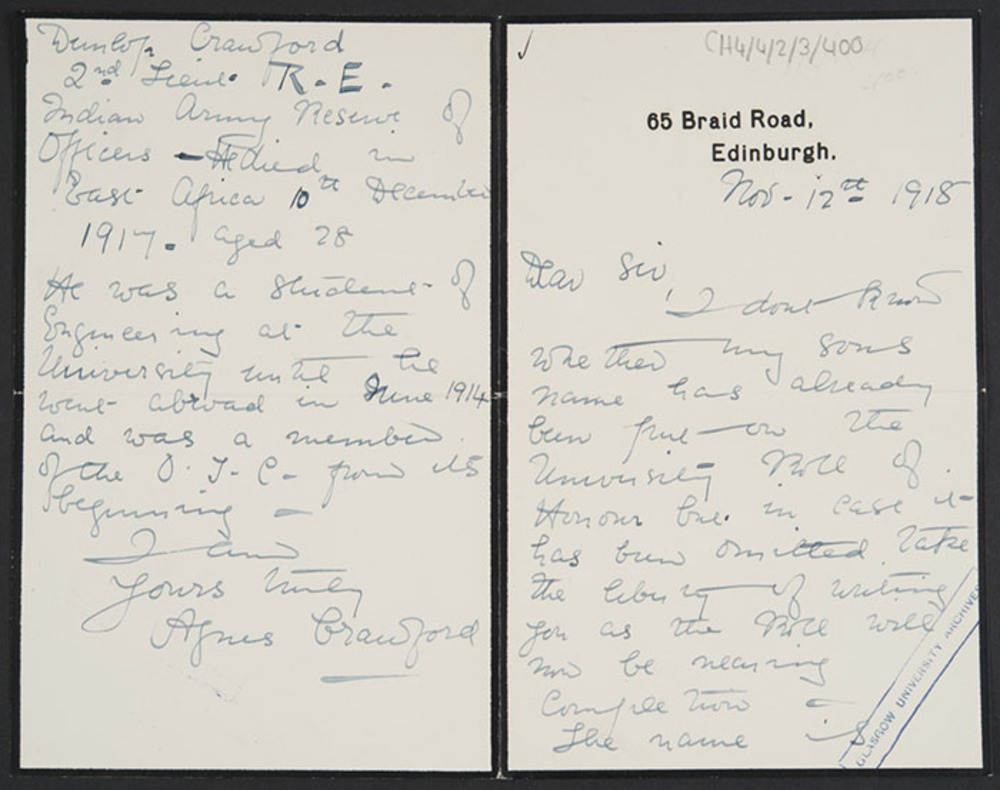 CH4/4/2/3/400
65 Braid Road,
Edinburgh.
Nov - 12th 1918
Dear Sir,
I dont know
whether my sons
name has already
been put on the
University Roll of
Honour but in case it
has been omitted take
the liberty of writing
you as the Roll will
now be nearing
Completion -
The name is
GLASGOW UNIVERSITY ARCHIVES
Dunlop Crawford
2nd Lieut. R.E.
Indian Army Reserve of
Officers - He died in
East Africa 10th December
1917. aged 28
He was a student of
Engineering at the
University until he
went abroad in June 1914
and was a member
of the O.T.C. from its
beginning -
I am
Yours truly
Agnes Crawford